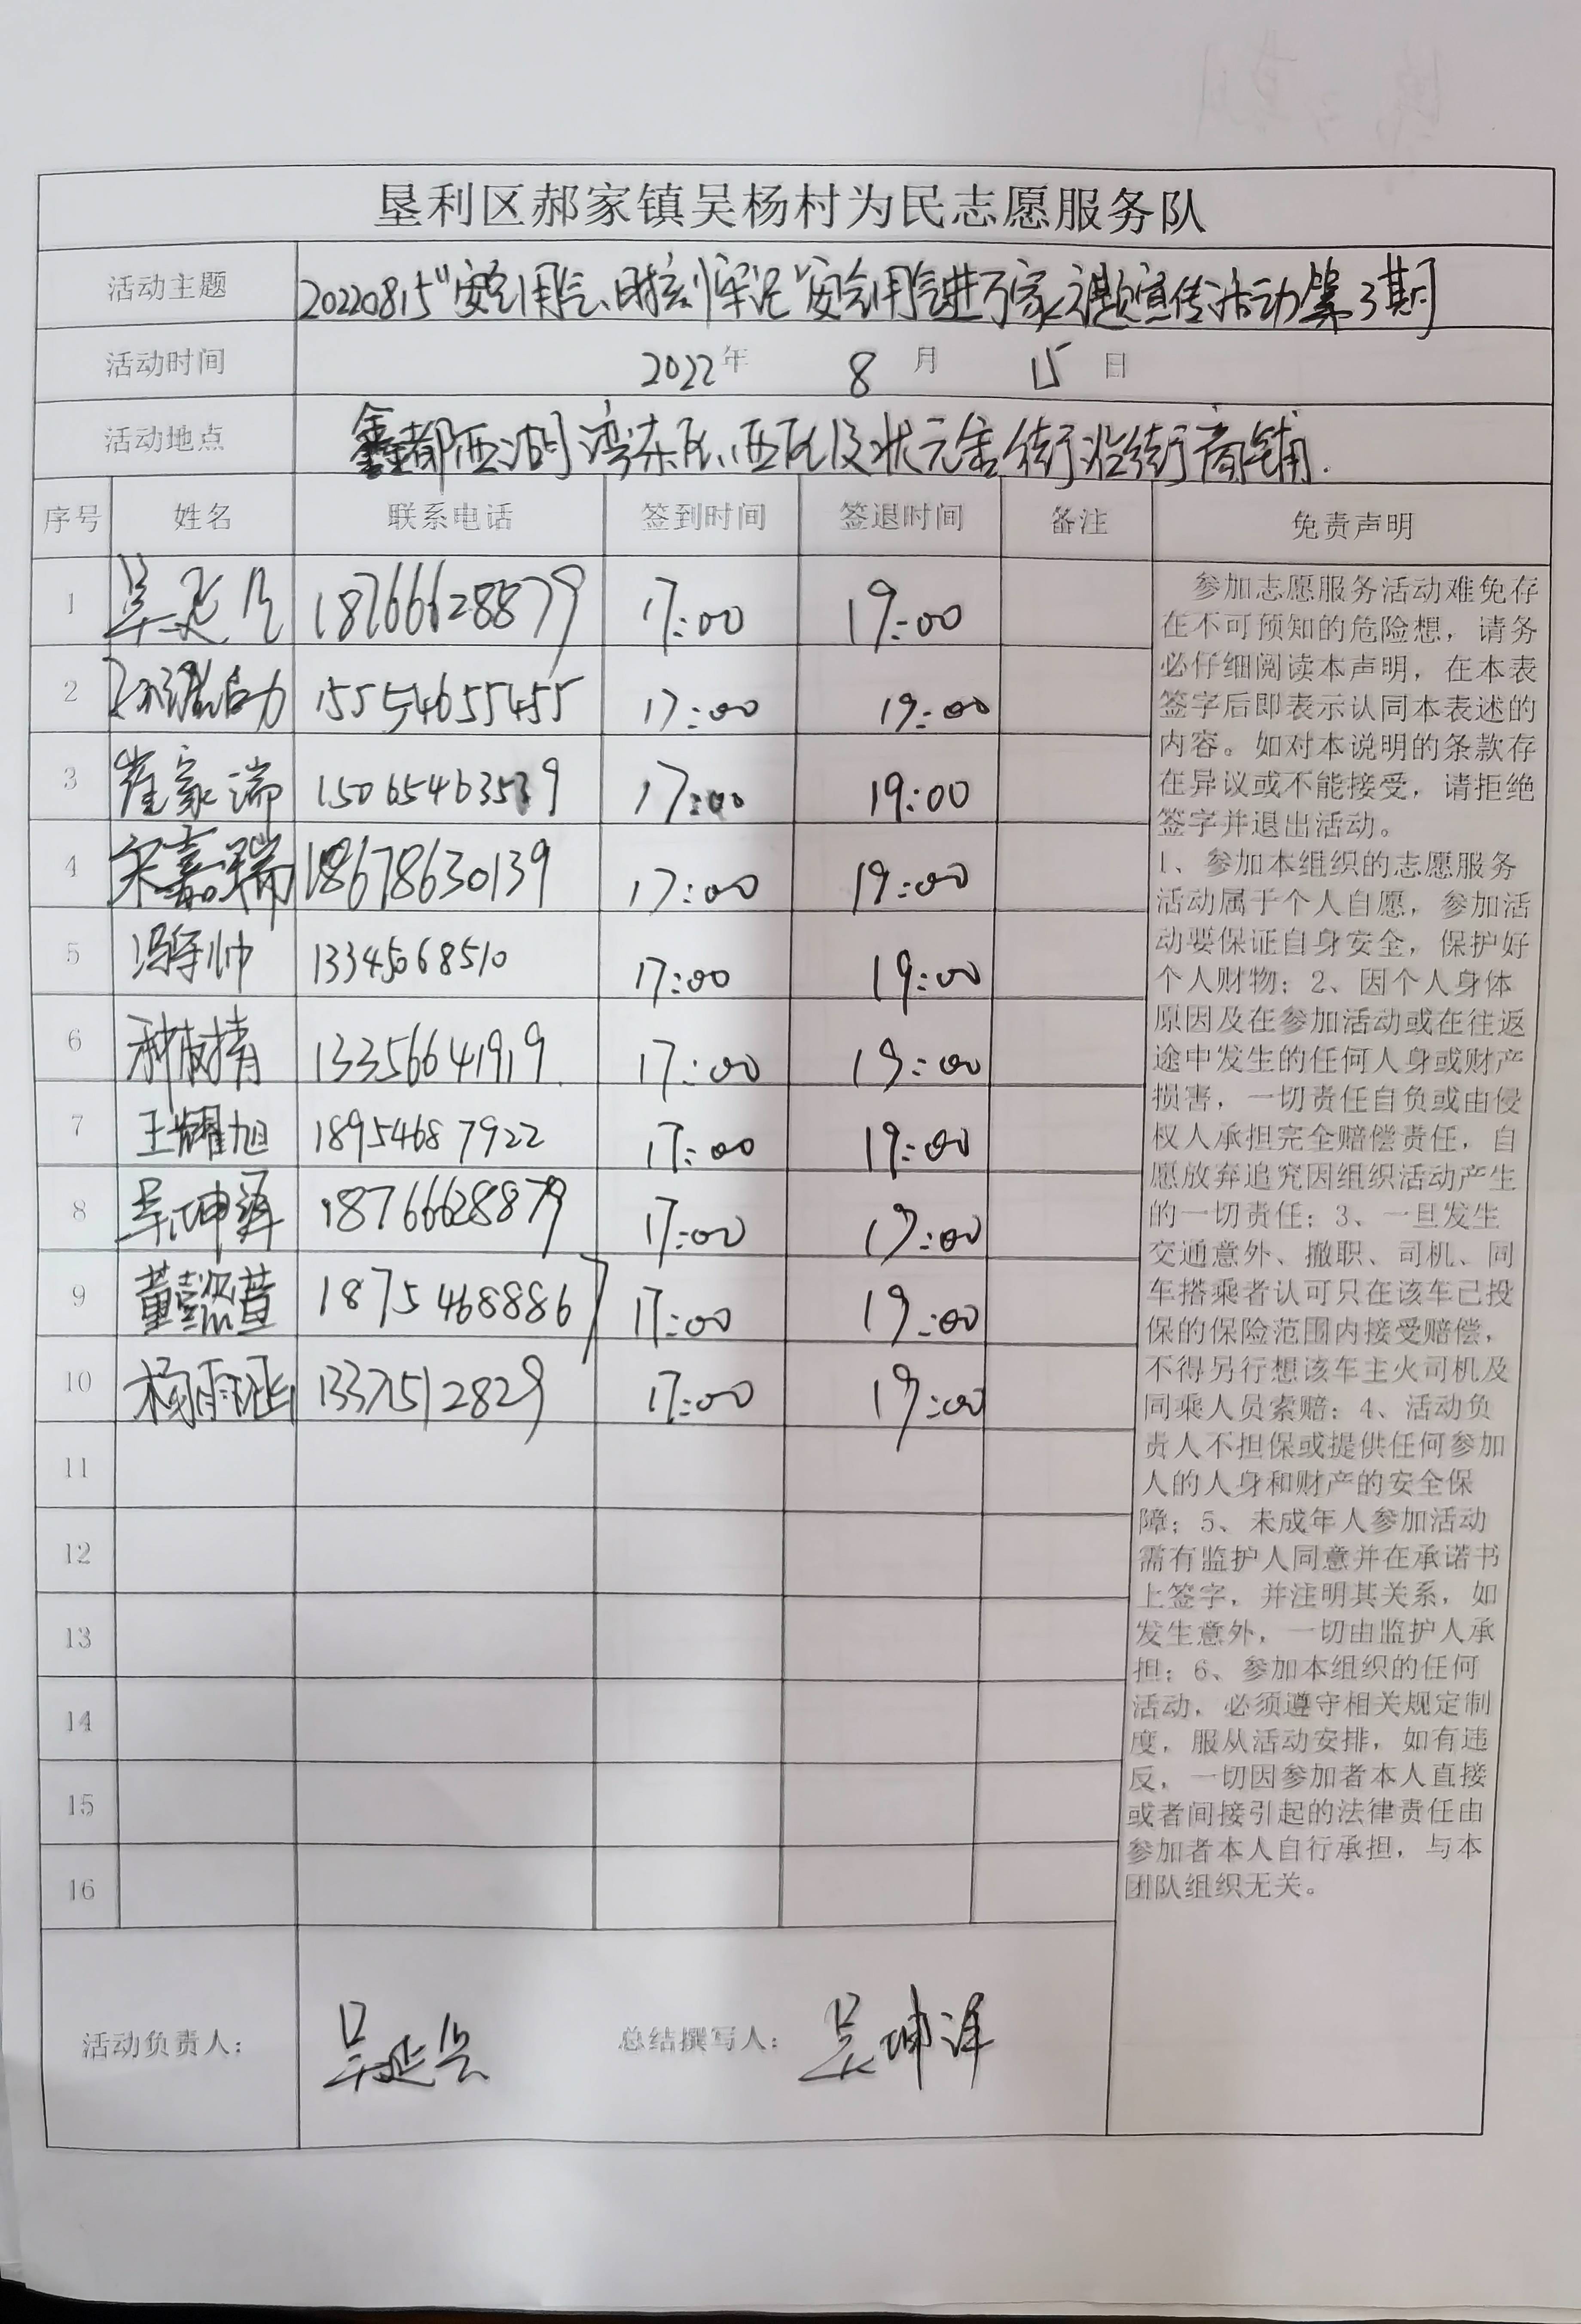 垦利区郝家镇吴杨村为民志愿服务队
活动主题 20220815"安全用气、时刻牢记"安全用气进万家主题宣传活动第3期
活动时间 2022年 8月 15日
活动地点 鑫都西湖湾东区、西区及状元街沿街商铺.
序号 姓名 联系电话 签到时间 签退时间 备注 免责声明
1 吴延 18766628879 17:00 19:00
2 15554655455 17:00 19:00
3 崔家瑞 15065463539 17:00 19:00
4 宋嘉瑞 18678630139 17:00 19:00
5 冯学帅 13345068510 17:00 19:00
6 13356641919 17:00 19:00
7 王耀旭 18954687922 17:00 19:00
8 吴坤泽 18766628879 17:00 19:00
9 董懿萱 18754688867 17:00 19:00
10 杨雨涵 13375512829 17:00 19:00
11
12
13
14
15
16
参加志愿服务活动难免存
在不可预知的危险想，请务
必仔细阅读本声明，在本表
签字后即表示认同本表述的
内容。如对本说明的条款存
在异议或不能接受，请拒绝
签字并退出活动。
1、参加本组织的志愿服务
活动属于个人自愿，参加活
动要保证自身安全，保护好
个人财物；2、因个人身体
原因及在参加活动或在往返
途中发生的任何人身或财产
损害，一切责任自负或由侵
权人承担完全赔偿责任，自
愿放弃追究因组织活动产生
的一切责任；3、一旦发生
交通意外、撤职、司机、同
车搭乘者认可只在该车己投
保的保险范围内接受赔偿，
不得另行想该车主火司机及
同乘人员索赔；4、活动负
责人不担保或提供任何参加
人的人身和财产的安全保
障；5、未成年人参加活动
需有监护人同意并在承诺书
上签字，并注明其关系，如
发生意外，一切由监护人承
担；6、参加本组织的任何
活动，必须遵守相关规定制
度，服从活动安排，如有违
反，一切因参加者本人直接
或者间接引起的法律责任由
参加者本人自行承担，与本
团队组织无关。
活动负责人： 吴延 总结撰写人： 吴坤泽